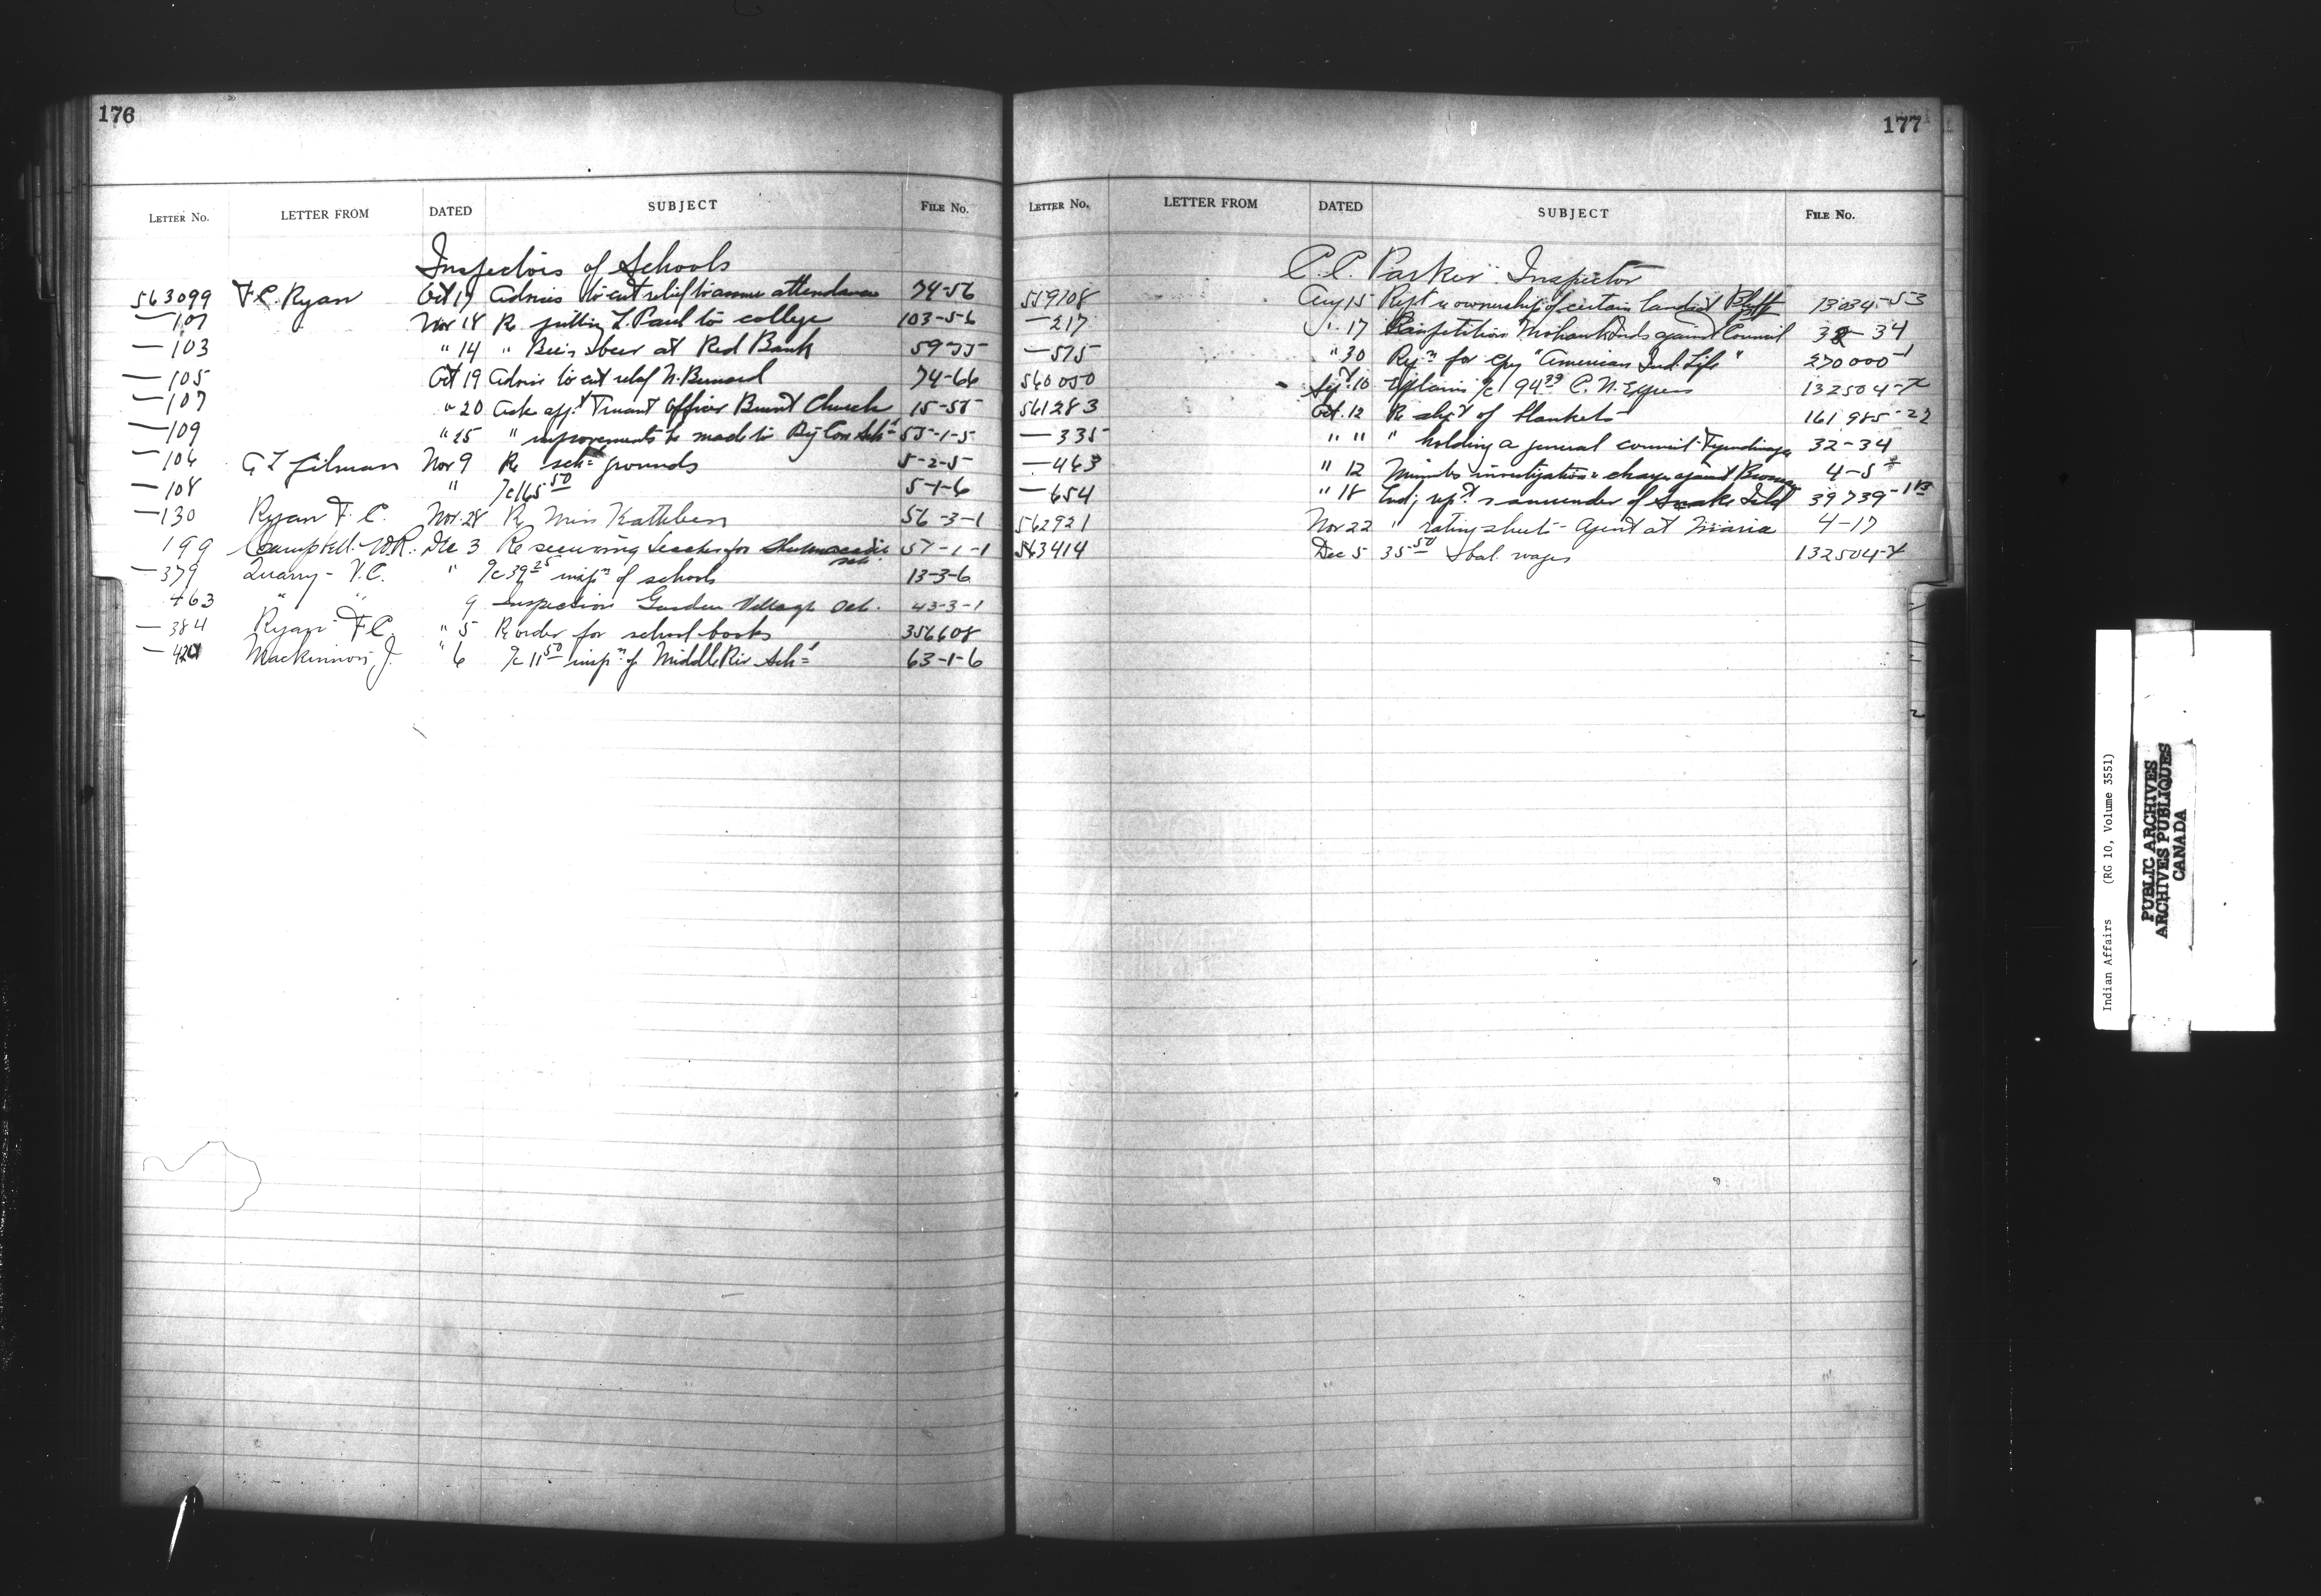 176
LETTER No. LETTER FROM DATED SUBJECT FILE No.
Inspectors of Schools
563099 F.C. Ryan Oct 19 Advises to cut relief to assure attendance 74-56
—101 Nov 18 Re putting L. Paul to college 103-5-6
—103 " 14 " at Red Bank 59-
—105 Oct 19 Advise to cut relief N. Bernard 74-66
—107 " 20 Ask app't Truant Officer Burnt Church 15-5
—109 " 25 " improvements to made to Sch 5-1-5
—106 Gilman Nov 9 Re sch grounds 5-2-5
—108 " 165 50 5-1-6
—130 Ryan F.C. Nov. 28 Re Miss Kathleen 56-3-1
199 Campbell W.R. Dec 3 Re securing teacher for Shubenacadie sch. 57-1-1
—379 Quarry V.C. " 39 25 insp'n of schools 13-3-6
463 " " 9 Inspection Garden Village Oct. 43-3-1
—384 Ryan F C " 5 Re order for school books 356608
—424 Mackinnon, J. " 6 11 50 insp'n of Middle Riv. Sch 63-1-6
177
LETTER No. LETTER FROM DATED SUBJECT FILE No.
C.C. Parker Inspector
559108 Aug 15 Rep't re ownership of certain land at Bluff 13034-53
—217 " 17 petition Mohawk Inds against Council 34
—575 " 30 for cpy "American Ind. Life" 270000-1
560050 Sept 10 Explains 94 C. N. Express 132504-
561283 Oct. 12 Re of blankets 161985-22
—335 " " " holding a general council Tyendinaga 32-34
—463 " 12 Minutes investigation charge against 4-5
—654 " 18 surrender of Snake Isld 39739-
562921 Nov 22 " rating sheet - Agent at Maria 4-17
563414 Dec 5 35 50 wages 132504-
Indian Affairs (RG 10, Volume 3551)
PUBLIC ARCHIVES
ARCHIVES PUBLIQUES
CANADA